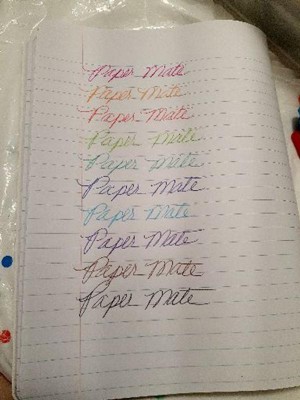 Paper Mate
Paper Mate
Paper Mate
Paper Mate
Paper Mate
Paper Mate
Paper Mate
Paper Mate
Paper Mate
Paper Mate